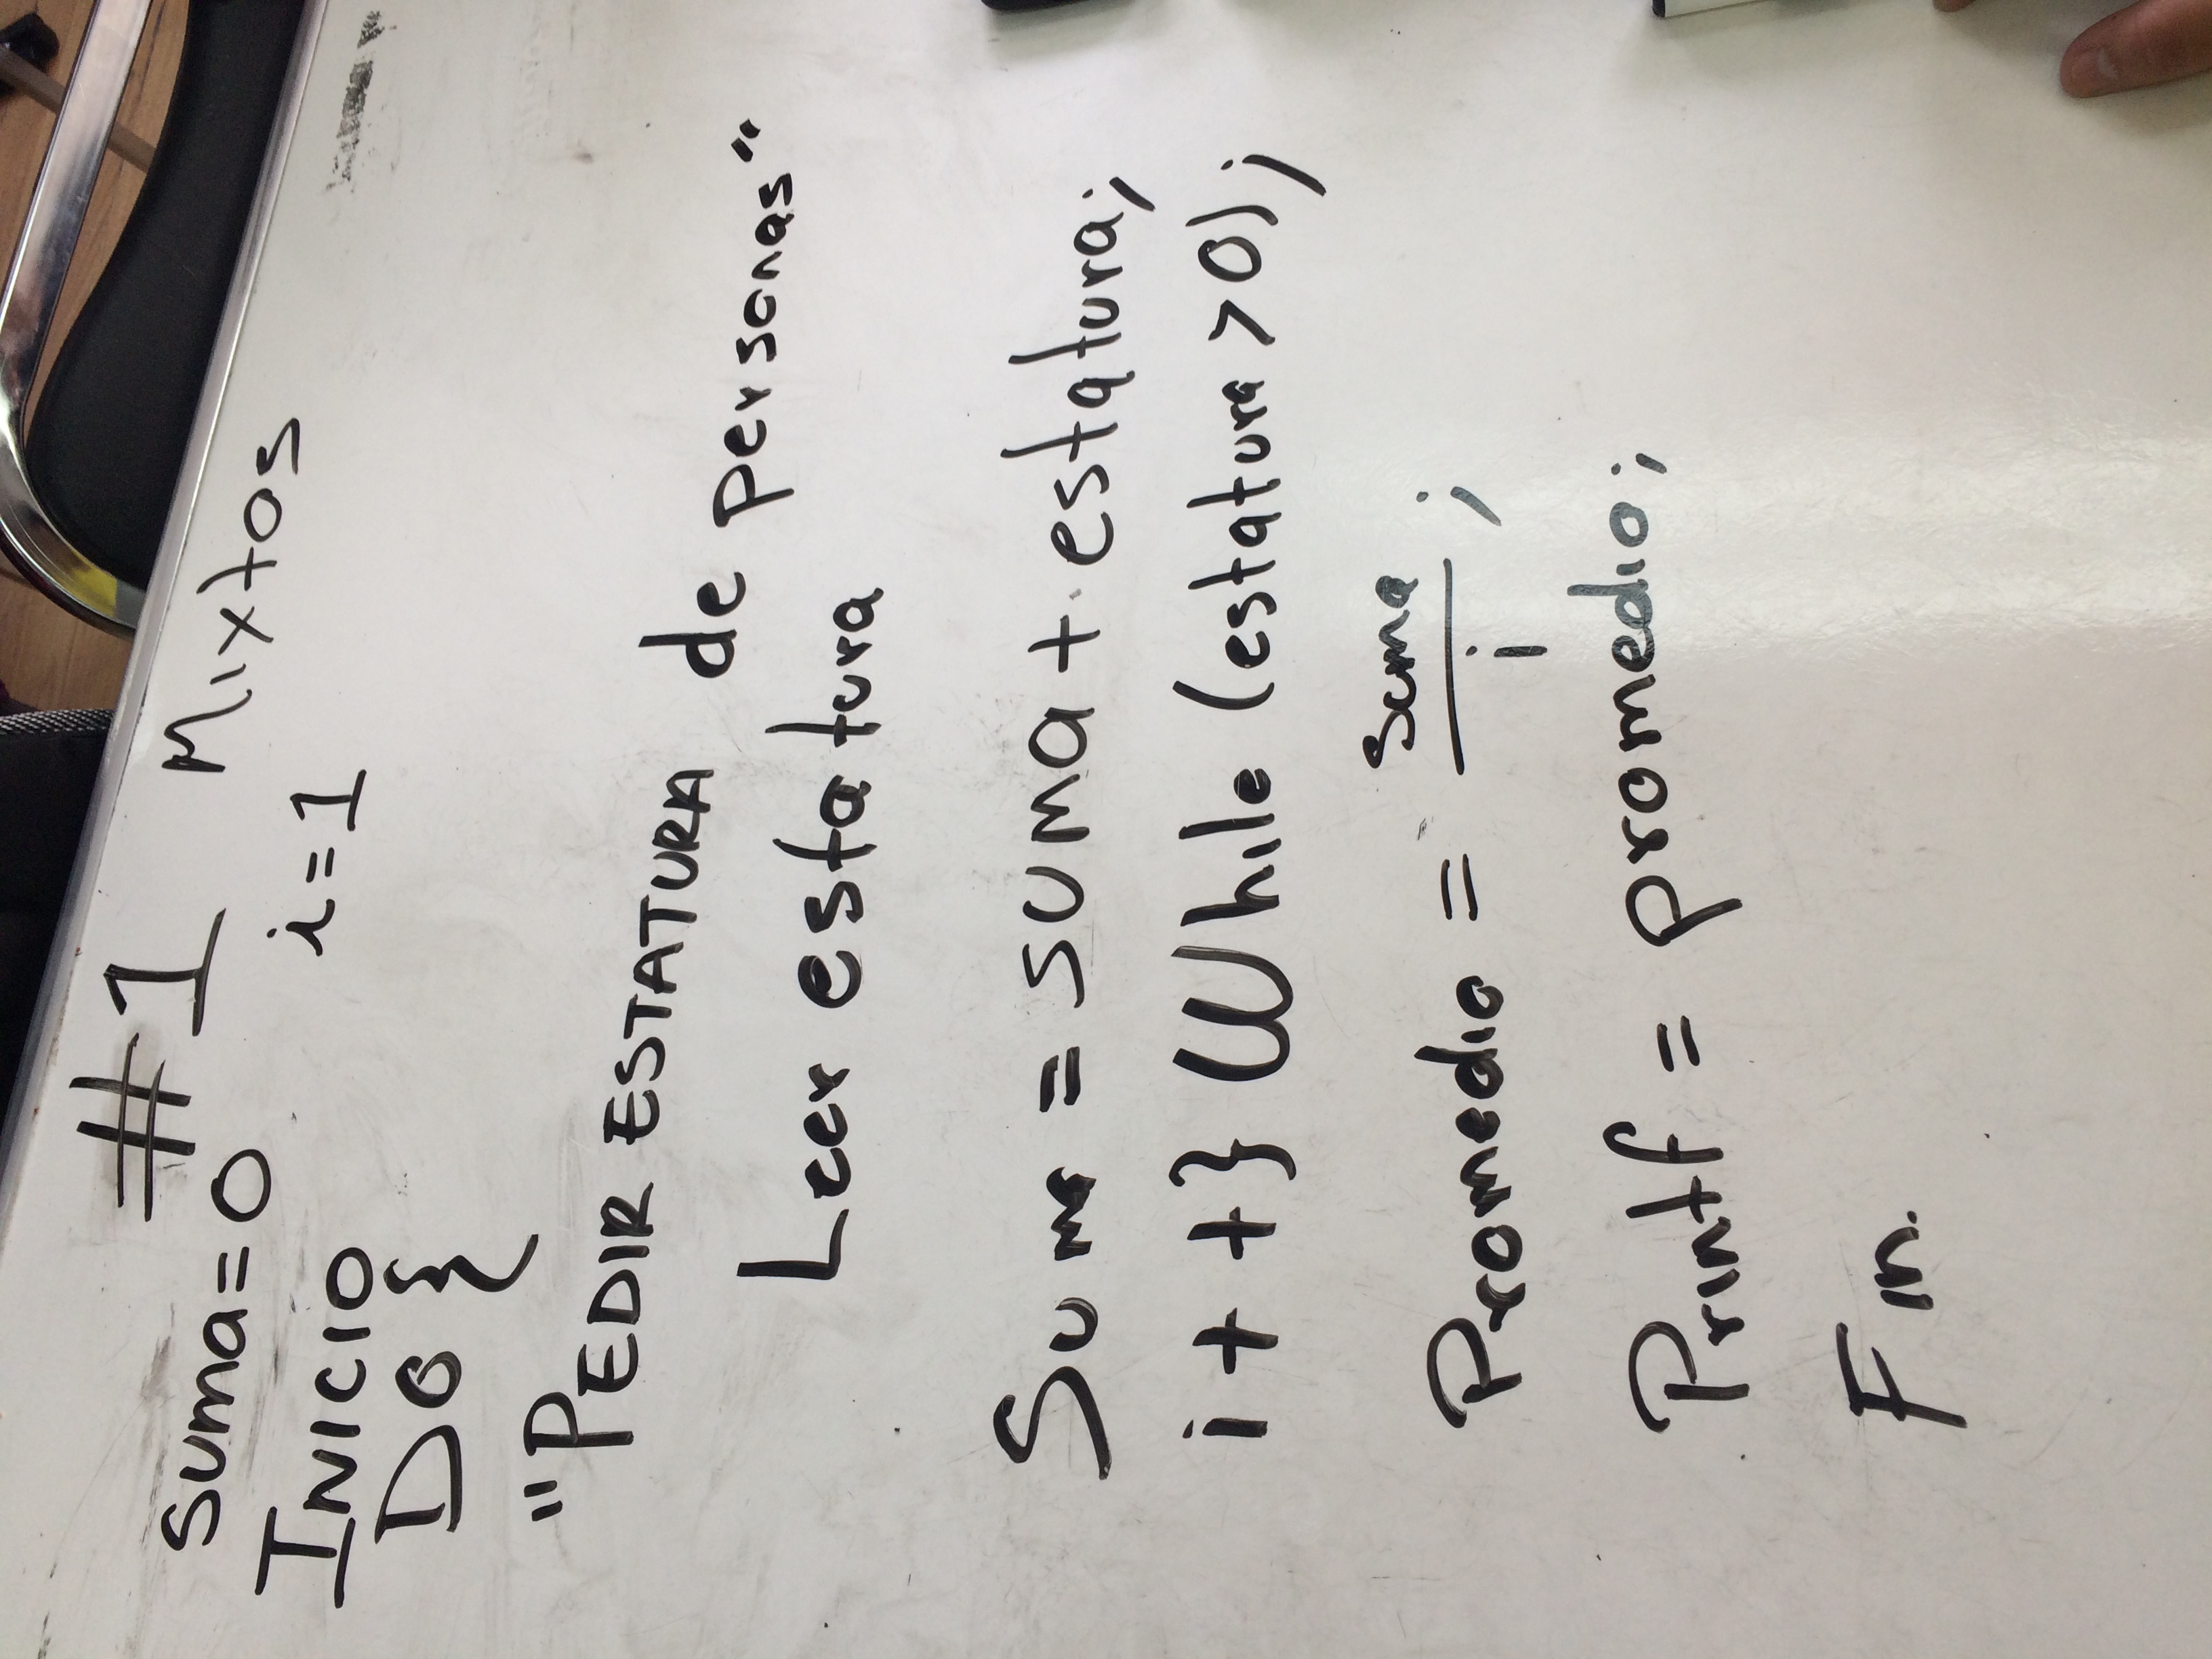 #1 Mixtos
suma=0
i=1
INICIO
DO {
"PEDIR ESTATURA de personas"
Leer estatura
Suma = suma + estatura;
i++} While (estatura >0);
Promedio = suma / i ;
Printf = promedio;
Fin.